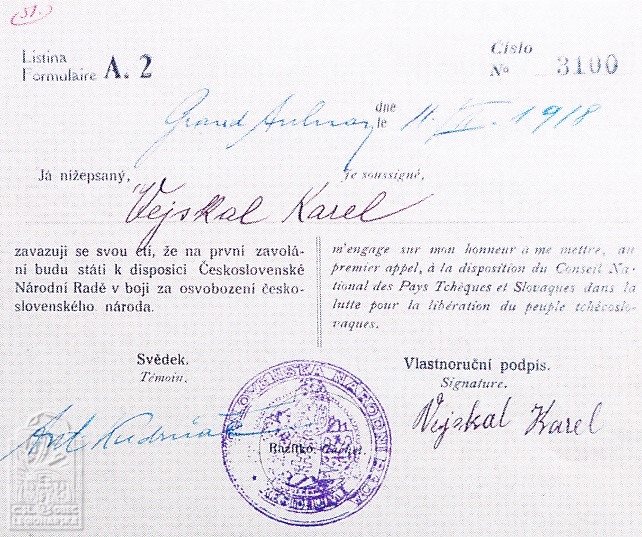 51.
Listina
Formulaire A. 2
Číslo
No 3100
dne
le 11. 1918
Já nížepsaný,
Je soussigné,
Vejskal Karel
zavazuji se svou ctí, že na první zavolá-
ní budu státi k disposici Československé
Národní Radě v boji za osvobození česko-
slovenského národa.
m'engage sur mon honneur à me mettre, au
premier appel, à la disposition du Conseil Na-
tional des Pays Tchèques et Slovaques dans la
lutte pour la libération du peuple tchécoslo-
vaques.
Svědek.
Témoin.
Vlastnoruční podpis.
Signature.
Vejskal Karel
Razítko
NÁRODNÍ
ČS. OBEC
LEGIONÁŘSKÁ